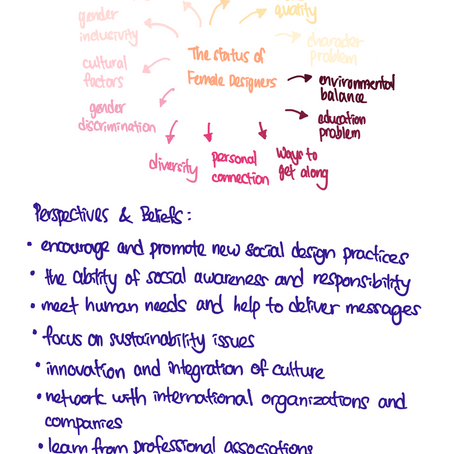 quality
gender
inclusivity
The status of
Female Designers
character
problem
cultural
factors
environmental
balance
gender
discrimination
education
problem
diversity
personal
connection
Ways to
get along
Perspectives & Beliefs:
• encourage and promote new social design practices
• the ability of social awareness and responsibility
• meet human needs and help to deliver messages
• focus on sustainability issues
• innovation and integration of culture
• network with international organizations and
companies
• learn from professional associations